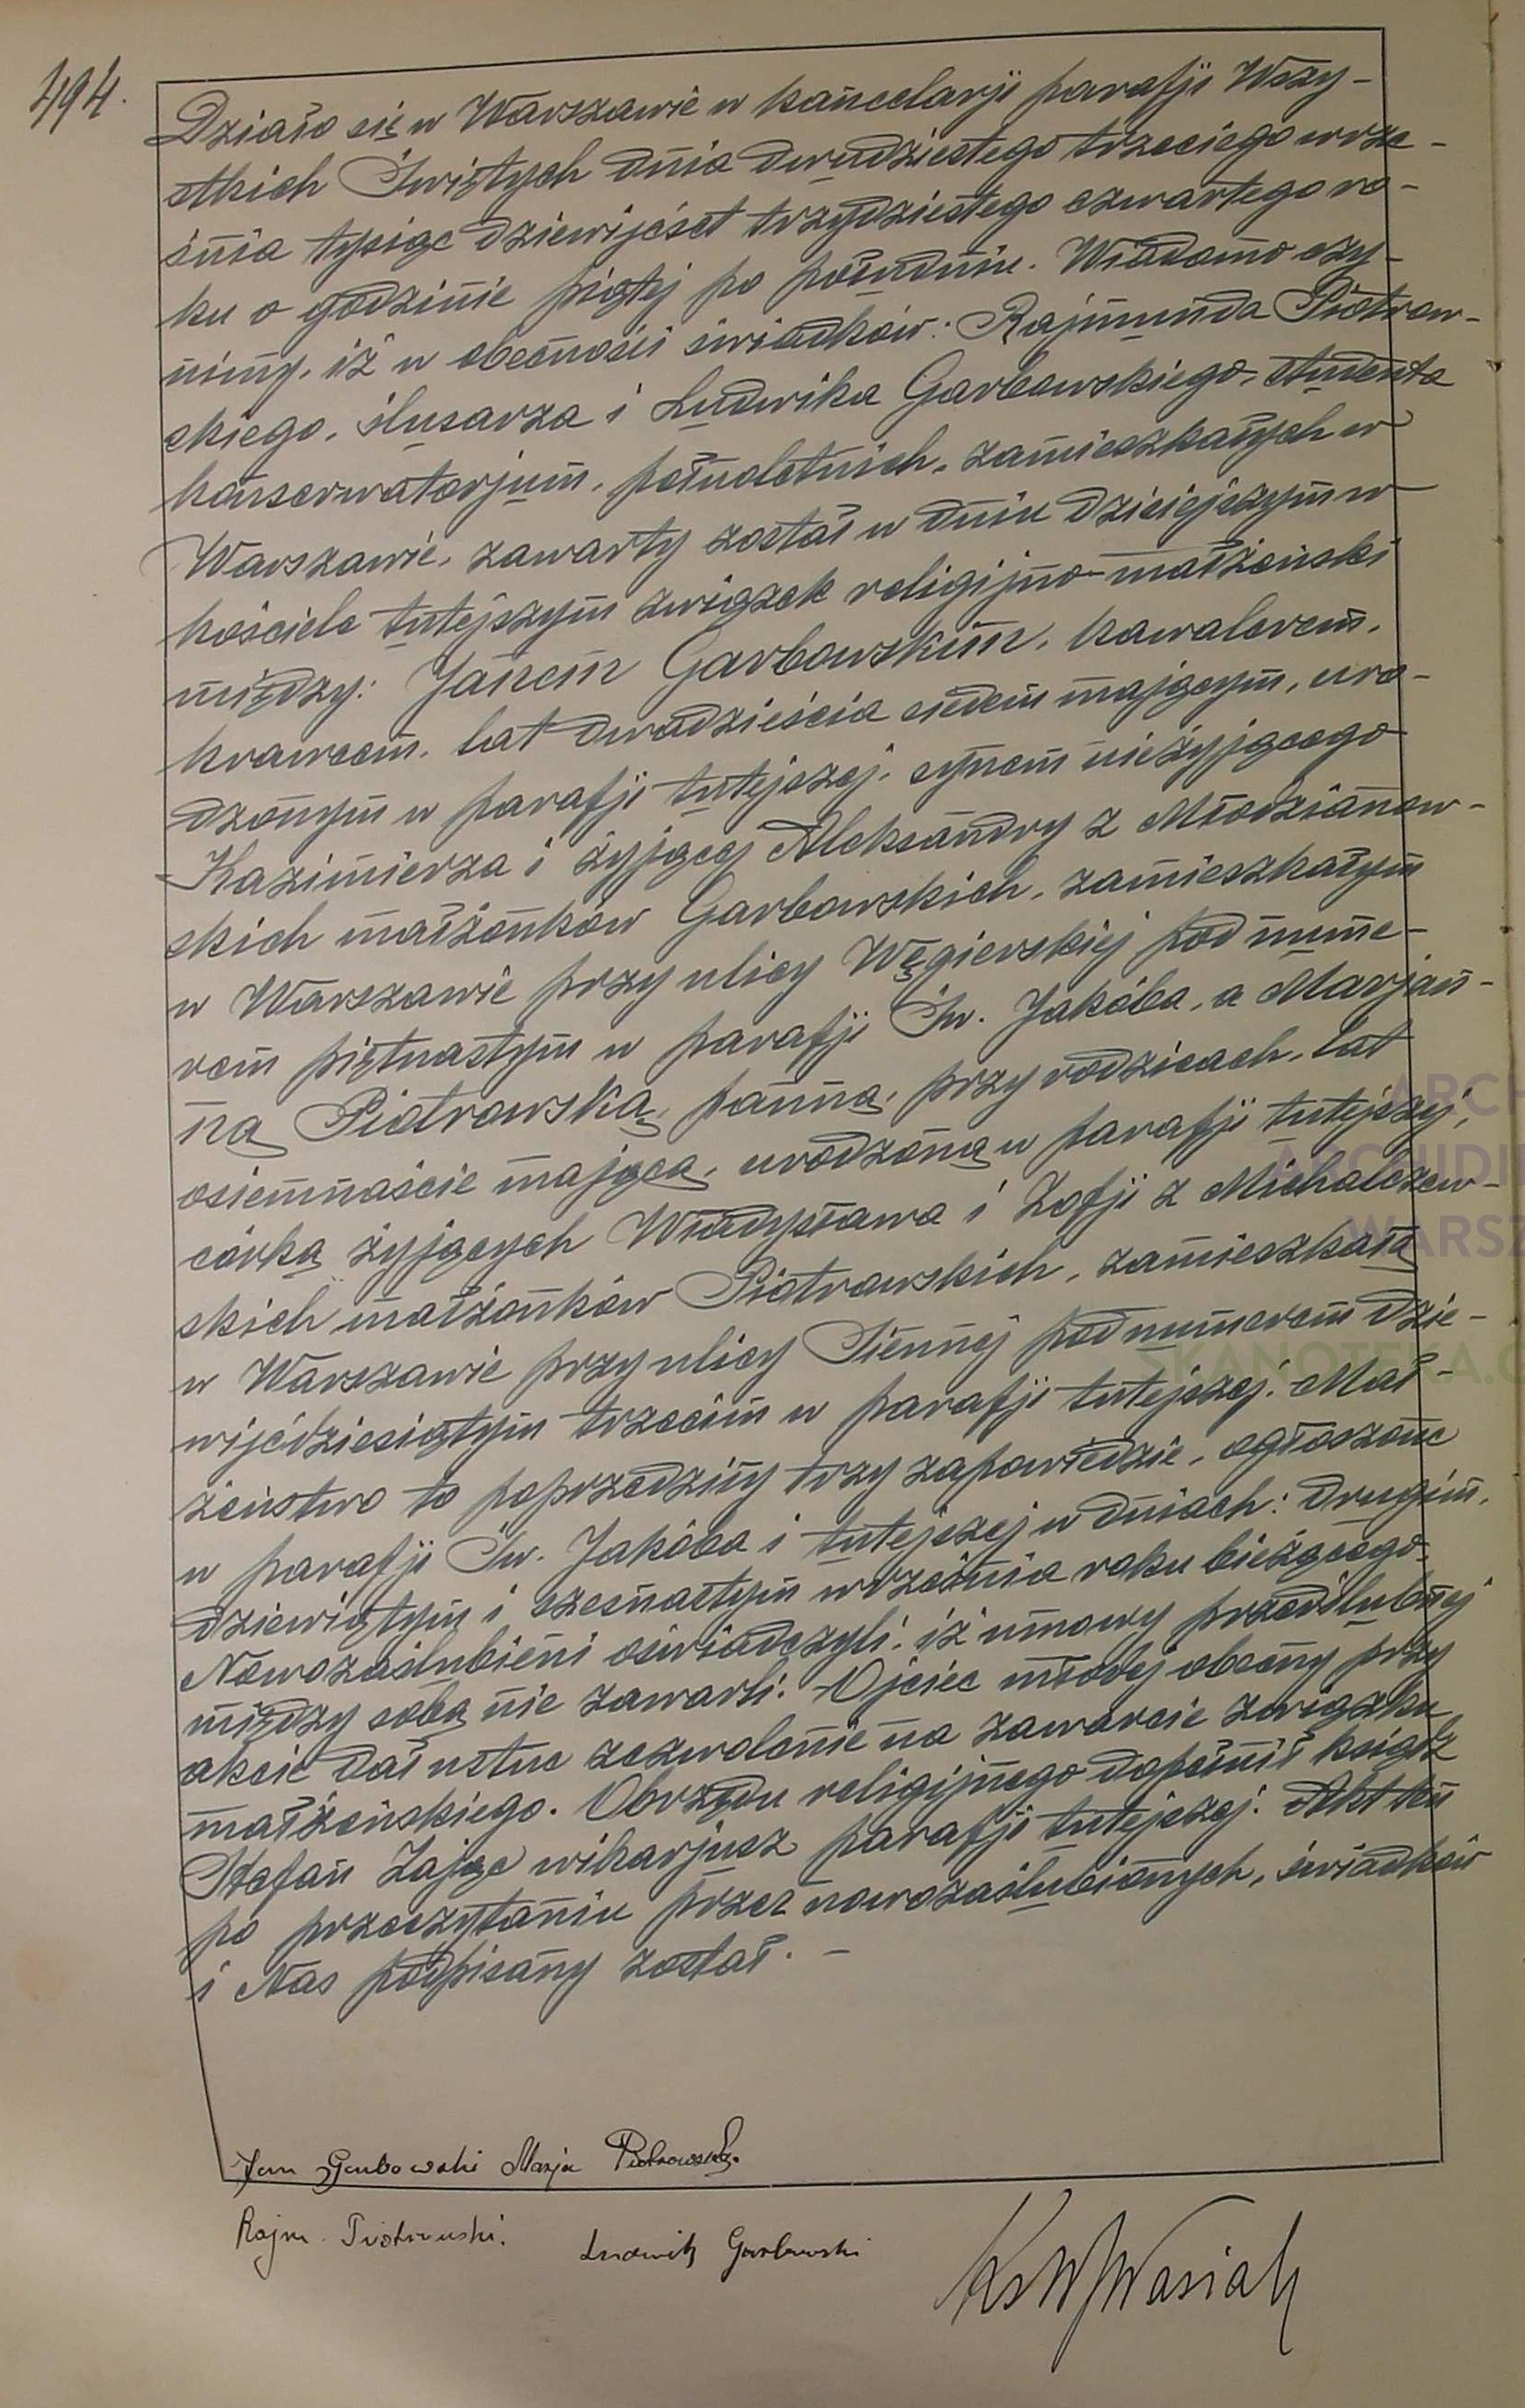 494.
Działo się w Warszawie w kancelarji parafji Wszy-
stkich Świętych dnia dwudziestego trzeciego wrze-
śnia tysiąc dziewięćset trzydziestego czwartego ro-
ku o godzinie piątej po południu. Wiadomo czy-
nimy, iż w obecności świadków: Rajmunda Piotrow-
skiego, ślusarza i Ludwika Garbowskiego, studenta
konserwatorjum, pełnoletnich, zamieszkałych w
Warszawie, zawarty został w dniu dzisiejszym w
kościele tutejszym związek religijno-małżeński
między: Janem Garbowskim, kawalerem,
krawcem, lat dwadzieścia siedem mającym, uro-
dzonym w parafji tutejszej, synem nieżyjącego
Kazimierza i żyjącej Aleksandry z Młodzianow-
skich małżonków Garbowskich, zamieszkałym
w Warszawie przy ulicy Węgierskiej pod nume-
rem piętnastym w parafji Św. Jakóba, a Marjan-
ną Piotrowską, panną, przy rodzicach, lat
osiemnaście mającą, urodzoną w parafji tutejszej,
córką żyjących Władysława i Zofji z Michalczew-
skich małżonków Piotrowskich, zamieszkałą
w Warszawie przy ulicy Siennej pod numerem dzie-
więćdziesiątym trzecim w parafji tutejszej. Mał-
żeństwo to poprzedziły trzy zapowiedzie, ogłoszone
w parafji Św. Jakóba i tutejszej w dniach: drugim,
dziewiątym i szesnastym września roku bieżącego.
Nowozaślubieni oświadczyli, iż umowy przedślubnej
między sobą nie zawarli. Ojciec młodej obecny przy
akcie dał ustne zezwolenie na zawarcie związku
małżeńskiego. Obrzędu religijnego dopełnił ksiądz
Stefan Zając wikarjusz parafji tutejszej. Akt ten
po przeczytaniu przez nowozaślubionych, świadków
i Nas podpisany został. –
Jan Garbowski Marja Piotrowska.
Rajm. Piotrowski. Ludwik Garbowski
Ks W Wasiak
ARCH
ARCHIDI
WARSZ
SKANOTEKA.G